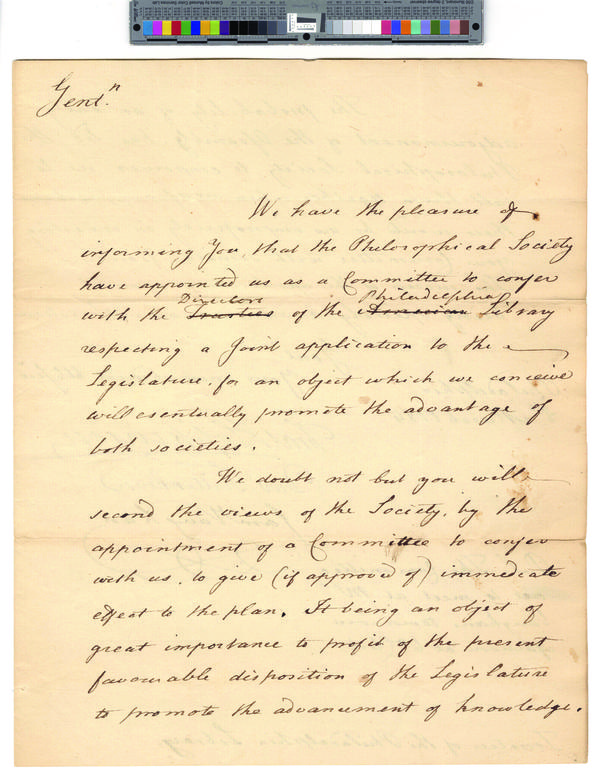 Gent.n
We have the pleasure of
informing You, that the Philosophical Society
have appointed us as a Committee to confer
Directors Philadelphia
with the Trustees of the American Library
respecting a Joint application to the
Legislature, for an object which we conceive
will eventually promote the advantage of
both societies.
We doubt not but you will
second the views of the Society, by the
appointment of a Committee to confer
with us, to give (if approved of) immediate
effect to the plan. It being an object of
great importance to profit of the present
favourable disposition of the Legislature
to promote the advancement of knowledge.